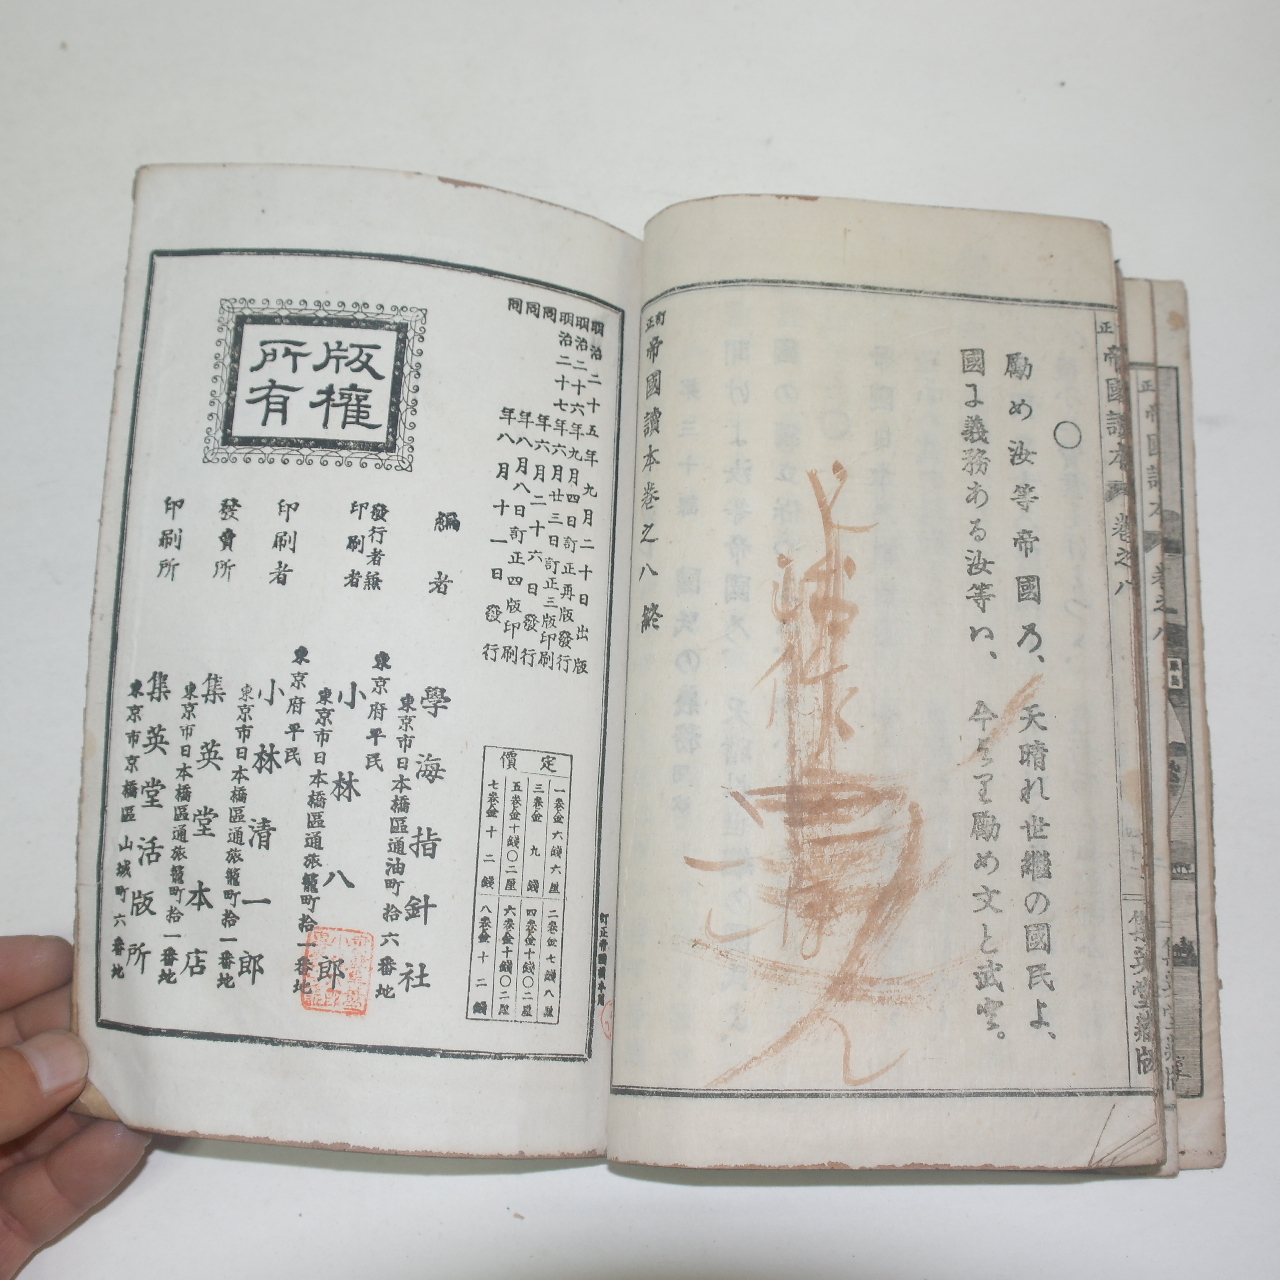 訂正 帝國讀本 卷之八
〇
勵め汝等帝國乃、天晴れ世繼の國民よ、
國に義務ある汝等い、今より勵め文と武を。
訂正 帝國讀本卷之八 終
明治二十五年九月二十日出版
明治二十六年九月四日訂正再版發行
明治二十七年六月廿三日訂正三版印刷
同年六月二十六日發行
同年八月八日訂正四版印刷
同年八月十一日發行
定價
一卷金六錢六厘
二卷金七錢八厘
三卷金九錢
四卷金十錢〇二厘
五卷金十錢〇二厘
六卷金十錢〇二厘
七卷金十二錢
八卷金十二錢
編者
學海指針社
東京市日本橋區通油町拾六番地
發行者兼印刷者
東京府平民
小林八郎
東京市日本橋區通旅籠町拾一番地
印刷者
東京府平民
小林清一郎
東京市日本橋區通旅籠町拾一番地
發賣所
集英堂本店
東京市日本橋區通旅籠町拾一番地
印刷所
集英堂活版所
東京市京橋區山城町六番地
版權所有